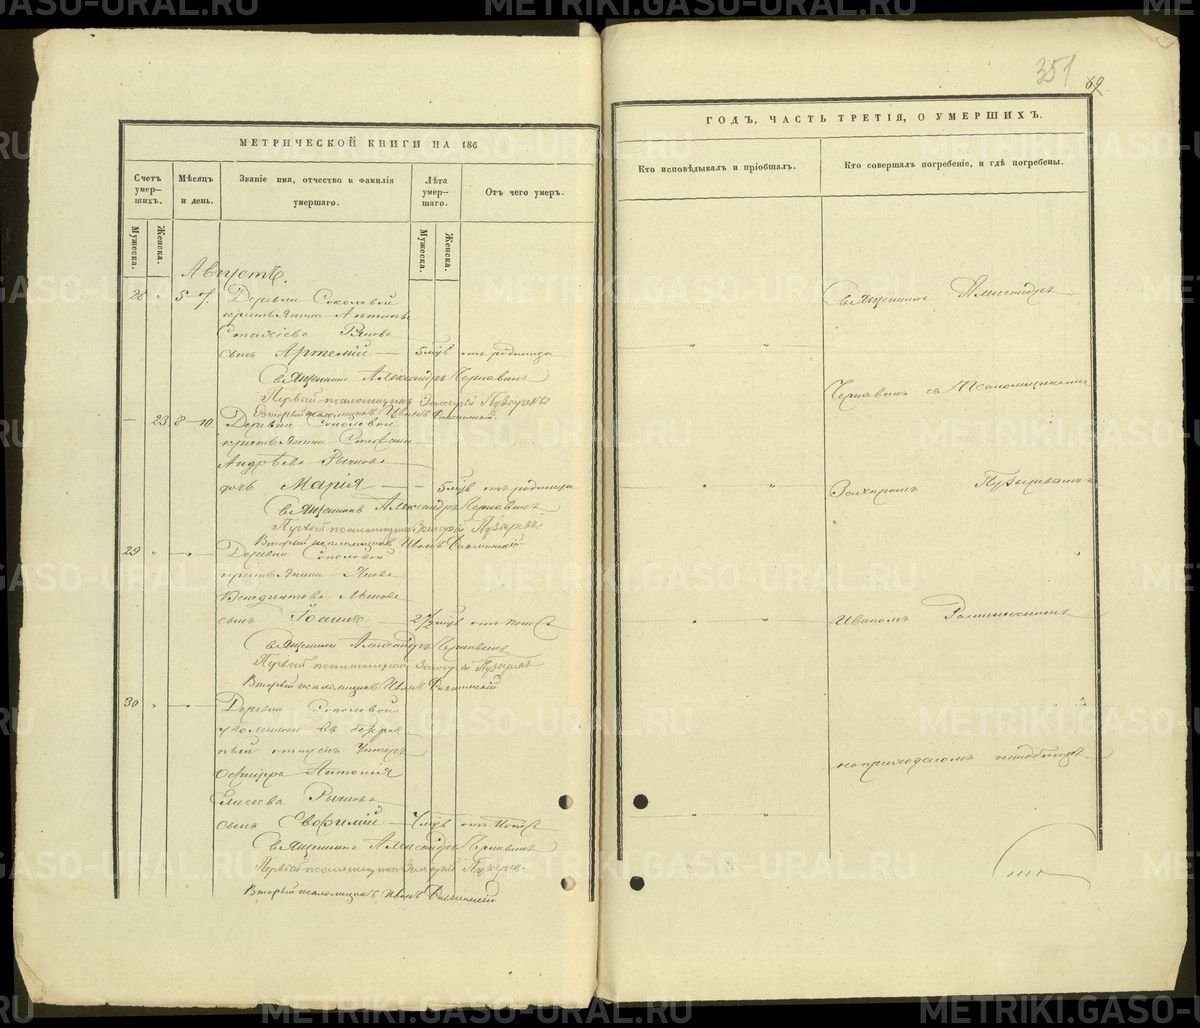 351
69.
МЕТРИЧЕСКОЙ КНИГИ НА 186
ГОДЪ, ЧАСТЬ ТРЕТІЯ, О УМЕРШИХЪ.
Счетъ умер-шихъ.
Мѣсяцъ и день.
Званіе имя, отчество и фамилія умершаго.
Лѣта умер-шаго.
Отъ чего умеръ.
Кто исповѣдывалъ и пріобщалъ.
Кто совершалъ погребеніе, и гдѣ погребены.
Мужеска.
Женска.
Мужеска.
Женска.
Августъ.
28 " 5 – 7. Деревни Соколовой
крестьянина Антипы
Стахіева
сынъ Артемій — 5 мѣс отъ родимца
Священникъ Александръ Чернавинъ
Первый псаломщикъ Захарій Пузыревъ
Второй псаломщикъ Иванъ
— 23 8 – 10. Деревни Соколовой
крестьянина Стефана
Андреева Рычкова
дочь Марія — — 5 мѣс отъ родимца
Священникъ Александръ Чернавинъ
Первый псаломщикъ Захарій Пузыревъ
Второй псаломщикъ Иванъ
29 " — " — Деревни Соколовой
крестьянина Якова
Венедиктова
сынъ Іоаннъ — 2 1/2 мѣс отъ поноса
Священникъ Александръ Чернавинъ
Первый псаломщикъ Захарій Пузыревъ
Второй псаломщикъ Иванъ
30 " — " — Деревни Соколовой
уволеннаго въ безсроч
ный отпускъ Унтеръ
Офицера Антонія
Елисеева Рычкова
сынъ Евфимій — мѣс отъ поноса
Священникъ Александръ Чернавинъ
Первый псаломщикъ Захарій Пузыревъ
Второй псаломщикъ Иванъ
Священникъ Александръ
Чернавинъ съ Псаломщиками
Захаромъ Пузыревымъ
Иваномъ
на приходскомъ кладбищѣ
METRIKI.GASO-URAL.RU